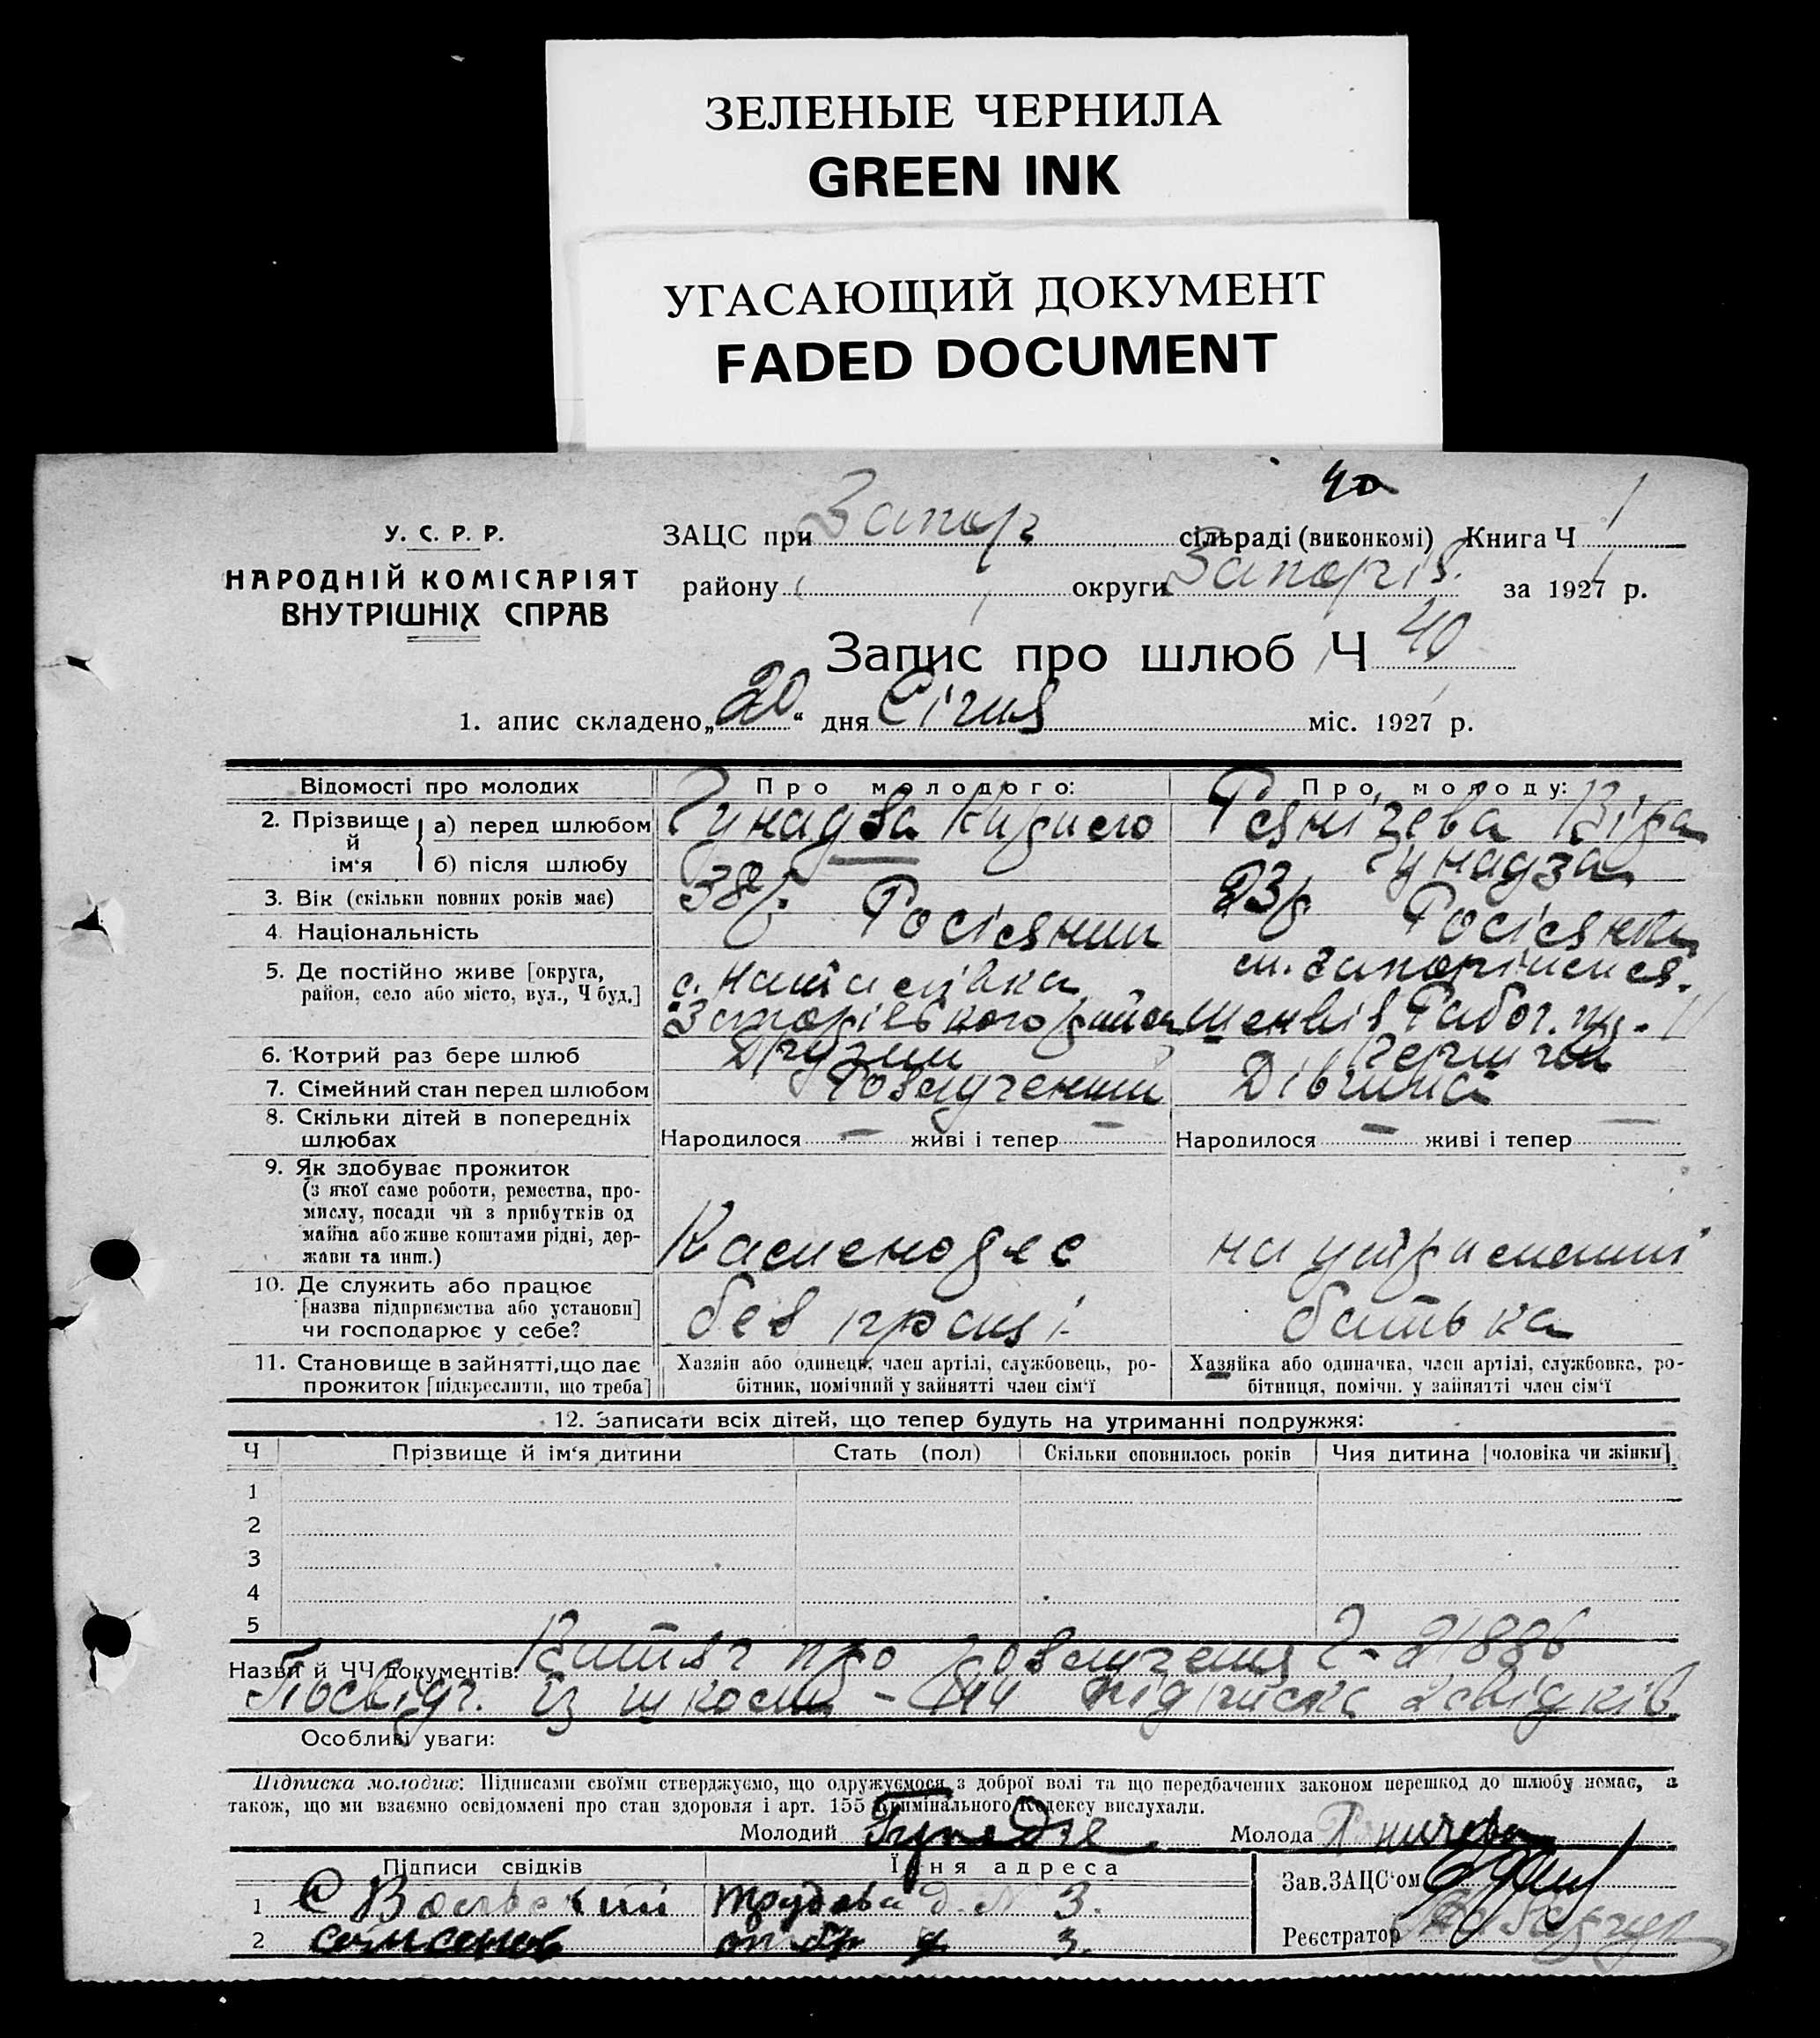 ЗЕЛЕНЫЕ ЧЕРНИЛА
GREEN INK
УГАСАЮЩИЙ ДОКУМЕНТ
FADED DOCUMENT
40
У. С. Р. Р.
НАРОДНІЙ КОМІСАРІЯТ
ВНУТРІШНІХ СПРАВ
ЗАЦС при Запор сільраді (виконкомі) Книга Ч 1
району округи Запоріз. за 1927 р.
Запис про шлюб Ч 40
1. апис складено „20“ дня Січня міс. 1927 р.
Відомості про молодих Про молодого: Про молоду:
2. Прізвище й ім‘я
а) перед шлюбом Гунадза Рєзнічева Віра
б) після шлюбу Гунадза
3. Вік (скільки повних років має) 38 р. 23 р
4. Національність Росіянин Росіянка
5. Де постійно живе [округа, с. м. Запоріжжя.
район, село або місто, вул., Ч буд.] Запорізького район Шенвіз Рабоч.
6. Котрий раз бере шлюб Другий Перший
7. Сімейний стан перед шлюбом Розлучений Дівчина
8. Скільки дітей в попередніх
шлюбах Народилося — живі і тепер — Народилося — живі і тепер —
9. Як здобуває прожиток
(з якої саме роботи, ремества, про-
мислу, посади чи з прибутків од
майна або живе коштами рідні, дер-
жави та инш.) Каменоряс на утриманні
10. Де служить або працює
[назва підприємства або установи] без праці батька
чи господарює у себе?
11. Становище в зайнятті, що дає Хазяїн або одинець, член артілі, службовець, ро- Хазяйка або одиначка, член артілі, службовка, ро-
прожиток [підкреслити, що треба] бітник, помічний у зайнятті член сім‘ї бітниця, помічн. у зайнятті член сім‘ї
12. Записати всіх дітей, що тепер будуть на утриманні подружжя:
Ч Прізвище й ім‘я дитини Стать (пол) Скільки сповнилось років Чия дитина [чоловіка чи жінки]
1
2
3
4
5
Назви й ЧЧ документів: Витяг про розлучення Ч-21886
Посвідч. із підписка 2 свідків
Особливі уваги:
Підписка молодих: Підписами своїми стверджуємо, що одружуємося з доброї волі та що передбачених законом перешкод до шлюбу немає, а
також, що ми взаємно освідомлені про стан здоров‘я і арт. 155 Кримінального Кодексу вислухали.
Молодий Гунадзе Молода
Підписи свідків Їхня адреса Зав.ЗАЦС‘ом
1 С трудова д. № 3.
2 3.
Реєстратор